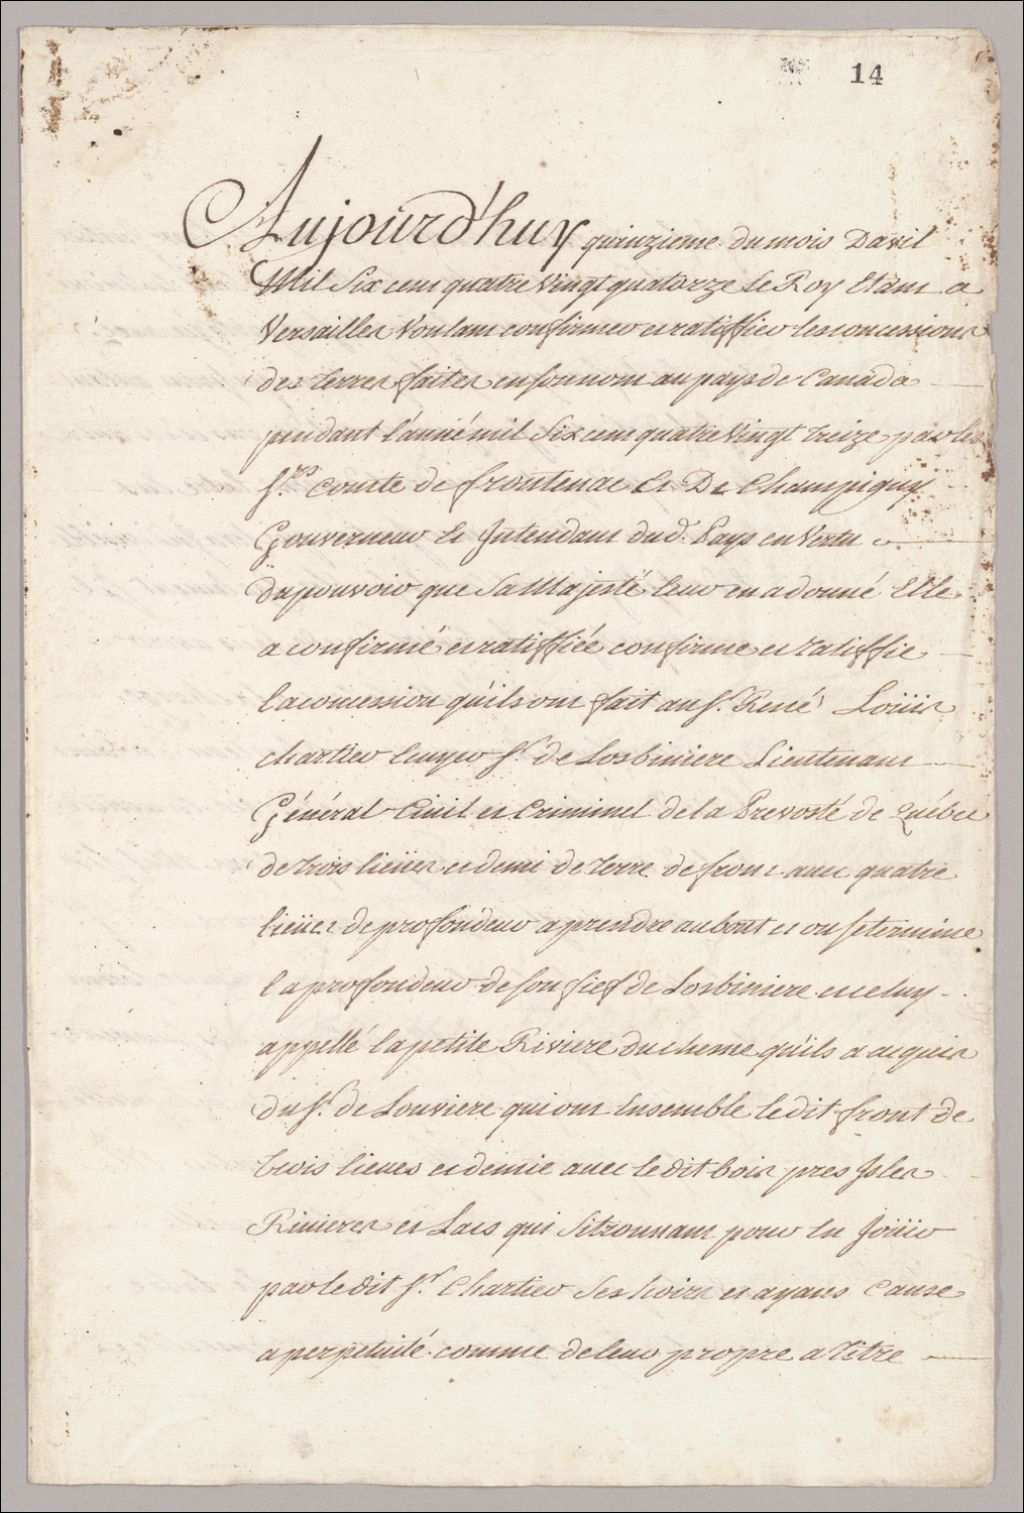 14
Aujourd'huy quinzieme du mois Davril
Mil Six cent quatre Vingt quatorze Le Roy Etant a
Versailles Voulant confirmer et ratiffier les concessions
des terres faites en son nom au pays de Canada
pendant l'année mil Six cent quatre Vingt treize par les
Srs Comte de frontenac et De Champigny
Gouverneur et Intendant dud. Pays en Vertu
du pouvoir que Sa Majesté leur en a donné Elle
a confirmé et ratiffiée confirme et ratiffie
la concession qu'ils ont fait au Sr. René Loüis
chartier Sr. de Lotbiniere Lieutenant
Général Civil et Criminel de la Prevosté de Québec
de trois lieües et demi de terre de front avec quatre
lieües de profondeur a prendre au bout et ou se termine
la profondeur de son fief de Lotbiniere et celuy
appellé la petite Riviere du chesne qu'ils a acquis
du Sr. de Louviere qui ont Ensemble le dit front de
trois lieues et demie avec le dit bois pres Isles
Rivieres et Lacs qui s'itrouvant pour en Joüir
par le dit Sr. Chartier Ses hoirs et ayans Cause
a perpetuité comme de leur propre a titre